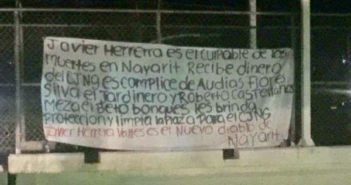 Javier Herrera es el culpable de las
Muertes en Nayarit Recibe dinero
del CJNG es complice de Audias Flores
Silva el Jardinero y Roberto Castellanos
Meza el Beto bonques les brinda
protección y limpia la Plaza Para el CJNG
Javier Herrera Valles es el Nuevo diablo de
Nayarit